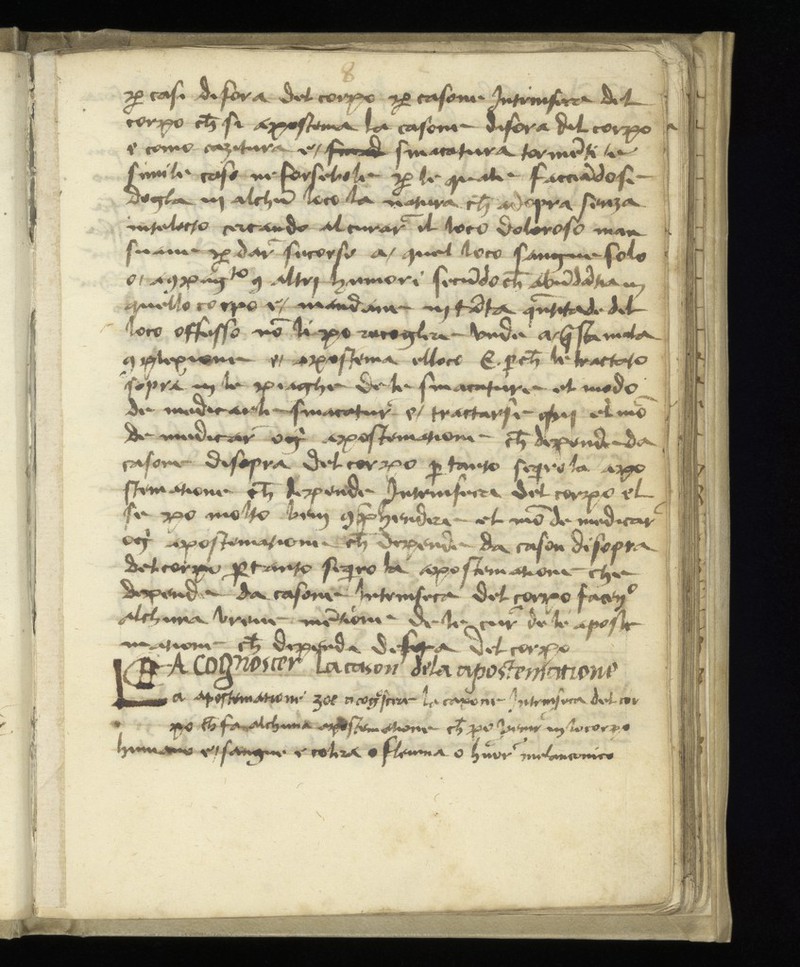 8
per casi difora del corpo per casone Intrinseca del
corpo ch̄ si apostema la casone difora del corpo
e como cazitura e smacatura torme̅ti le
simile caso ne forsebole per le quale faccia̅dose
dogla in alchu̅ loco la natura ch̄ adopra senza
intelecto cercando al curar il loco doloroso man
suaue per dar sucorso a quel loco sangue solo
o altri humori secu̅doch̄ abu̅da̅tia in
quello corpo e mandane in ta̅ta qu̅titade del
loco offusso no̅ li po recoglere unde mala
9plexione et apostema elloco E. perch̄ le tractato
sopra in le piaghe de le smacature el modo
de medicar le smacatur e tractarse qui el mo̅
de medicar og̅ apostematione ch̄ depende da
casone disopra del corpo p tanto seq̄ro la apo
stematione ch̄ depende Intrinseca del corpo el
se po molto ben 9prhendere el mo̅ de medicar
og̅ apostematione ch̄ depende da cason disopra
del corpo p tanto seq̄ro la apostematione che
depende da casone Intrinseca del corpo face̅do
alchuna breue me̅tione de le cur de le aposte
matione ch̄ depende defora del corpo
A Cognoscer La cason de la apostematione
La apostematione zoe a cog̅scere la casone Intrinseca del cor
po ch̄ fa alchuna apostematione ch̄ po venir in lo corpo
humano e sangue e colira o fleuma o huor melanconico